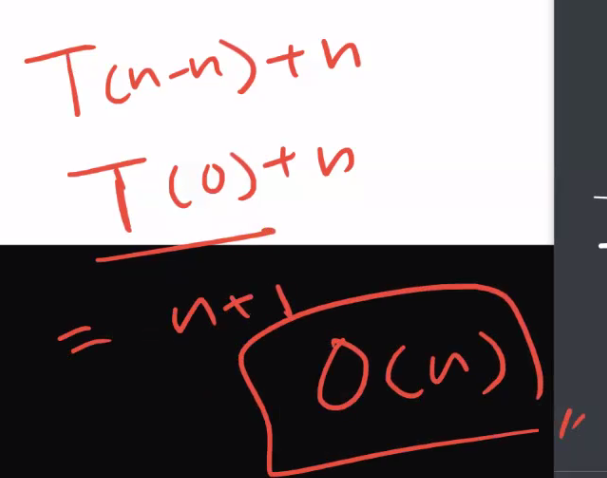 T(n-n)+n
T(0)+n
= n+1
O(n)